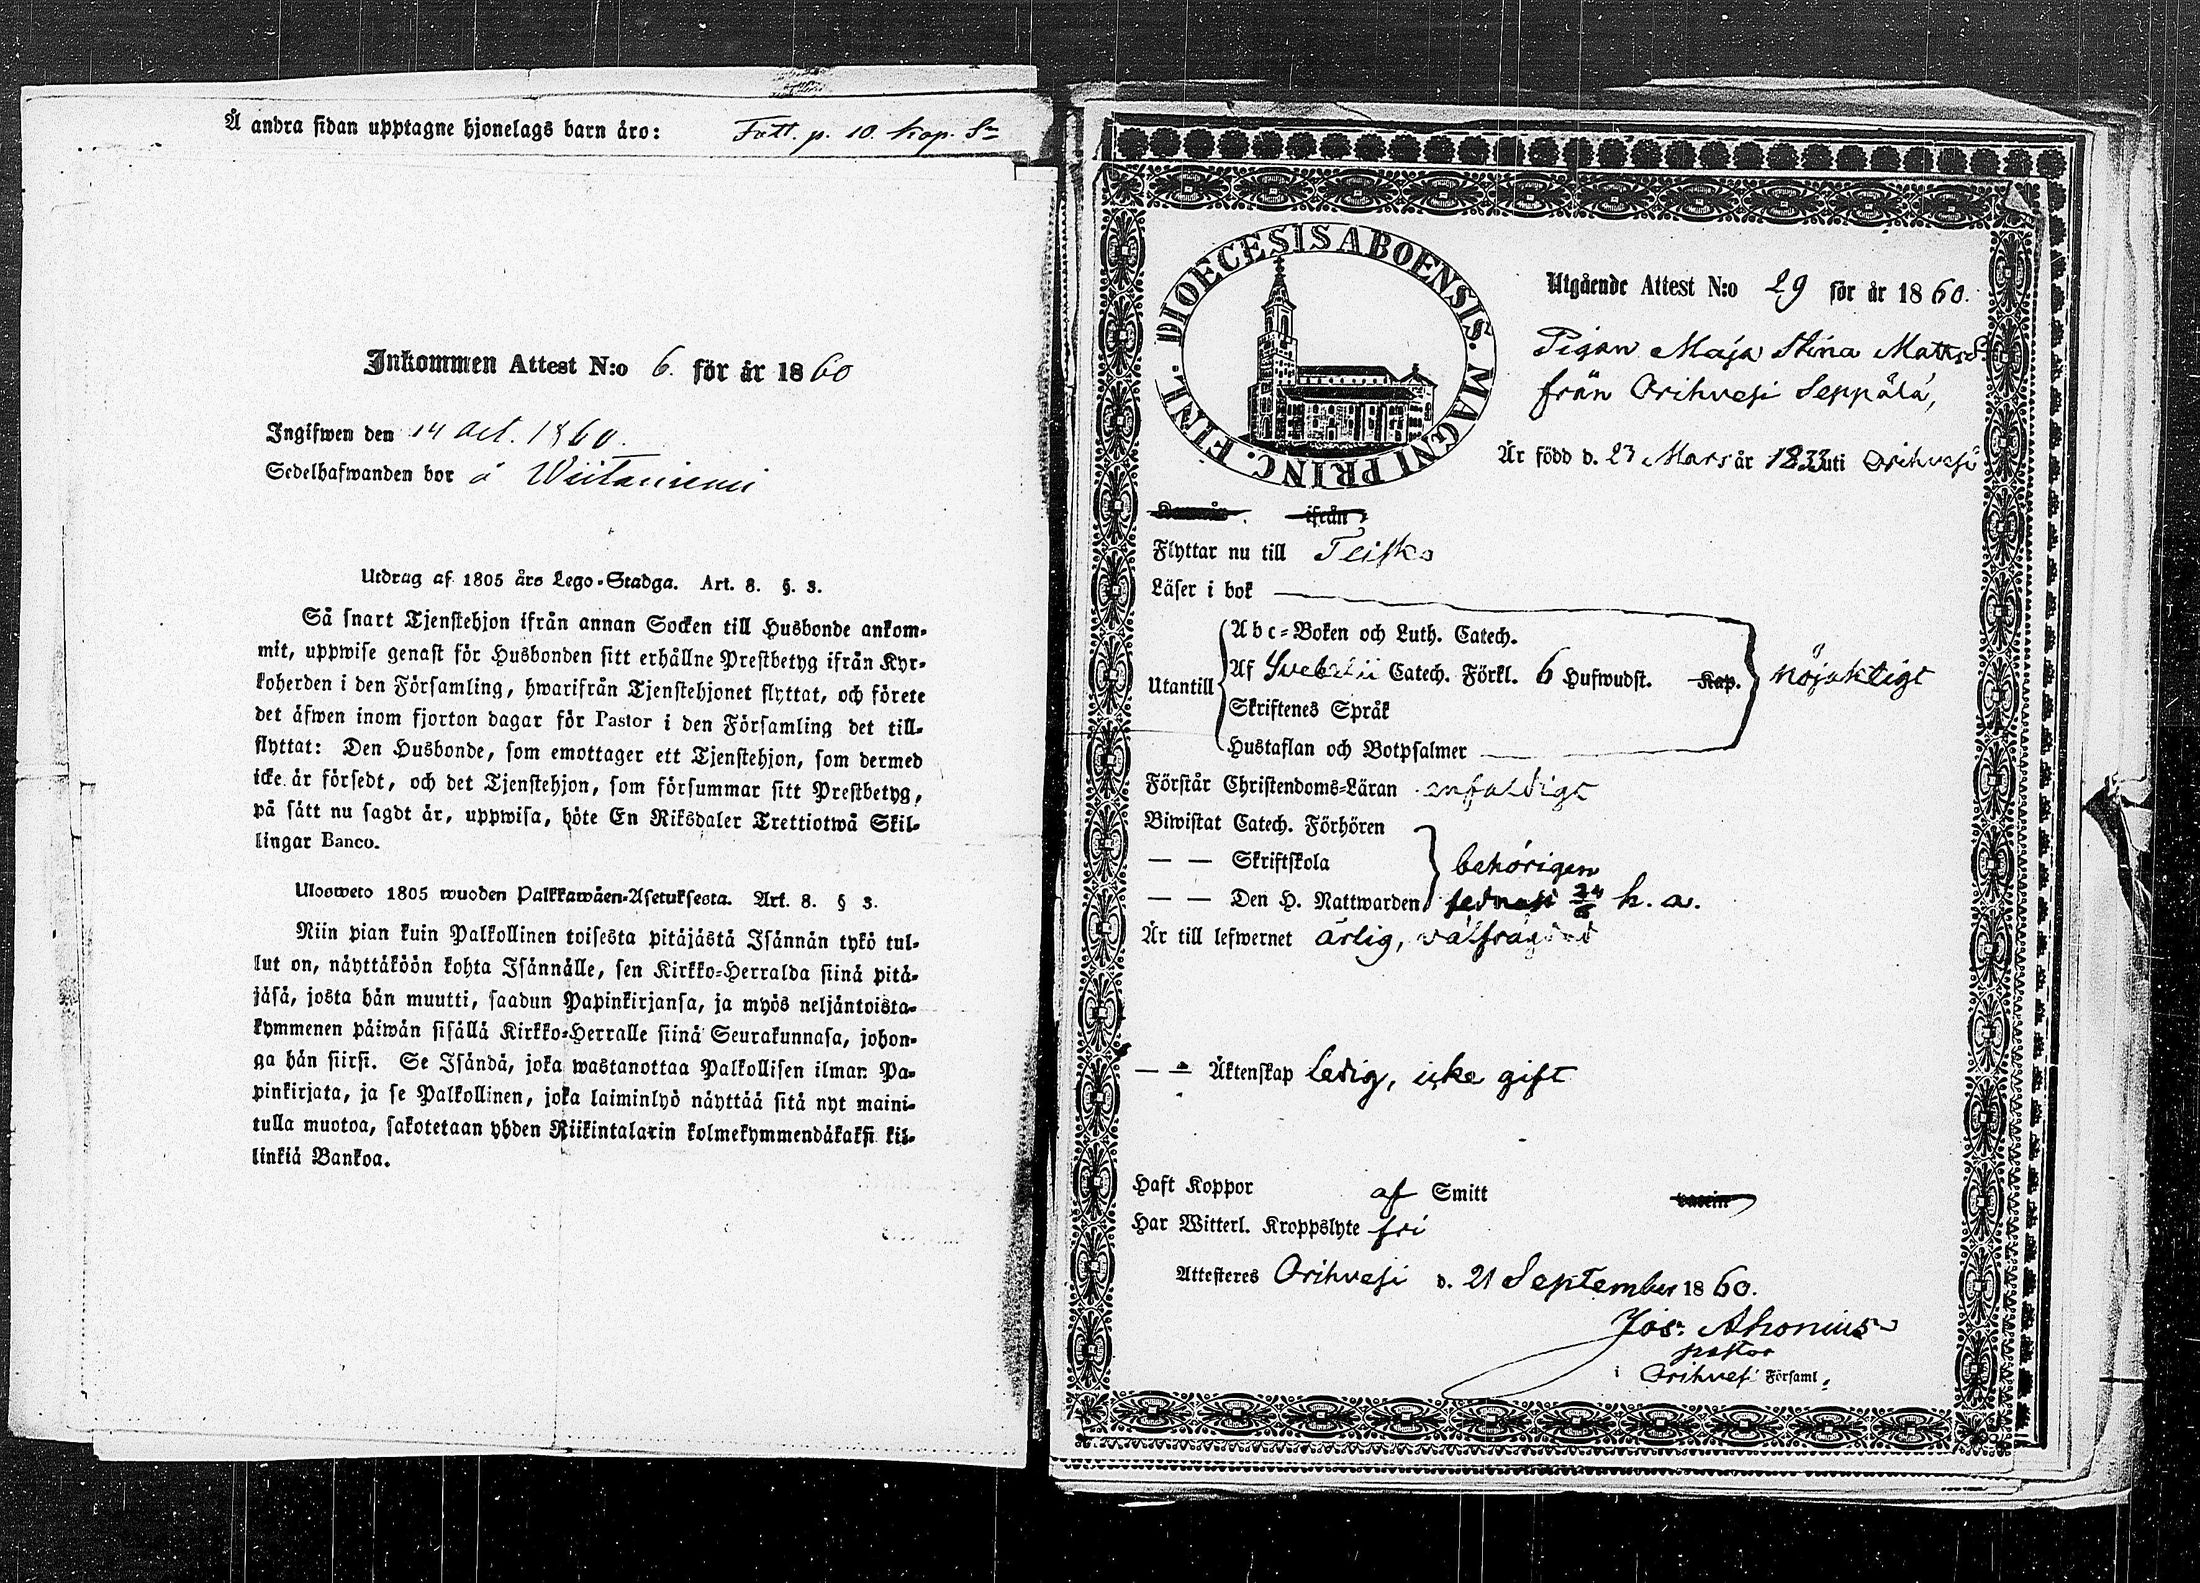 Å andra sidan upptagne hjonelags barn äro: Fatt. p. 10. kop. Sr
Inkommen Attest N:o 6. för år 1860
Ingifwen den 14 Oct. 1860.
Sedelhafwanden bor å Wiitaniemi
Utdrag af 1805 års Lego-Stadga. Art. 8. §. 3.
Så snart Tjenstehjon ifrån annan Socken till Husbonde ankom-
mit, uppwise genast för Husbonden sitt erhållne Prestbetyg ifrån Kyr-
koherden i den Församling, hwarifrån Tjenstehjonet flyttat, och förete
det äfwen inom fjorton dagar för Pastor i den Församling det till-
flyttat: Den Husbonde, som emottager ett Tjenstehjon, som dermed
icke är försedt, och det Tjenstehjon, som försummar sitt Prestbetyg,
på sätt nu sagdt är, uppwisa, böte En Riksdaler Trettiotwå Skil-
lingar Banco.
Ulosweto 1805 wuoden Palkkawäen-Asetuksesta. Art. 8. § 3.
Niin pian kuin Palkollinen toisesta pitäjästä Isännän tykö tul-
lut on, näyttäköön kohta Isännälle, sen Kirkko-Herralda siinä pitä-
jäsä, josta hän muutti, saadun Papinkirjansa, ja myös neljäntoista-
kymmenen päiwän sisällä Kirkko-Herralle siinä Seurakunnasa, johon-
ga hän siirsi. Se Isändä, joka wastanottaa Palkollisen ilman Pa-
pinkirjata, ja se Palkollinen, joka laiminlyö näyttää sitä nyt maini-
tulla muotoa, sakotetaan yhden Riikintalarin kolmekymmendäkaksi kil-
linkiä Bankoa.
DIOECESIS ABOENSIS. MAGNI PRINC. FINL.
Utgående Attest N:o 29 för år 1860.
Pigan Maja Stina Mattsd.
från Orihvesi Seppälä,
Är född d. 23 Mars år 1833 uti Orihvesi
ifrån
Flyttar nu till Teisko
Läser i bok
Utantill
Abc-Boken och Luth. Catech.
Af Svebelii Catech. Förkl. 6 Hufwudst. Kap. nöjaktigt
Skriftenes Språk
Hustaflan och Botpsalmer
Förstår Christendoms-Läran enfaldigt
Biwistat Catech. Förhören
— — Skriftskola behörigen
— — Den H. Nattwarden sednast 24/6 h. a.
Är till lefwernet ärlig, välfrägdad
— — Äktenskap ledig, icke gift
Haft Koppor af Smitt vaccin
Har Witterl. Kroppslyte fri
Attesteres Orihvesi d. 21 September 1860.
Jos. Ahonius
pastor
i Orihvesi Församl.